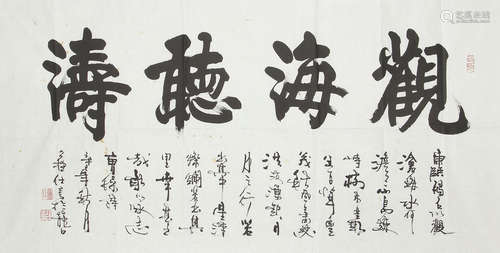 觀海聽濤
東臨碣石以觀
滄海水何
澹澹山島竦
峙樹木叢
生百草豐
茂秋風蕭瑟
洪波湧起日
月之行若
出其中星漢
燦爛若出其
里幸甚至
哉歌以詠志
曹操詩
秋月